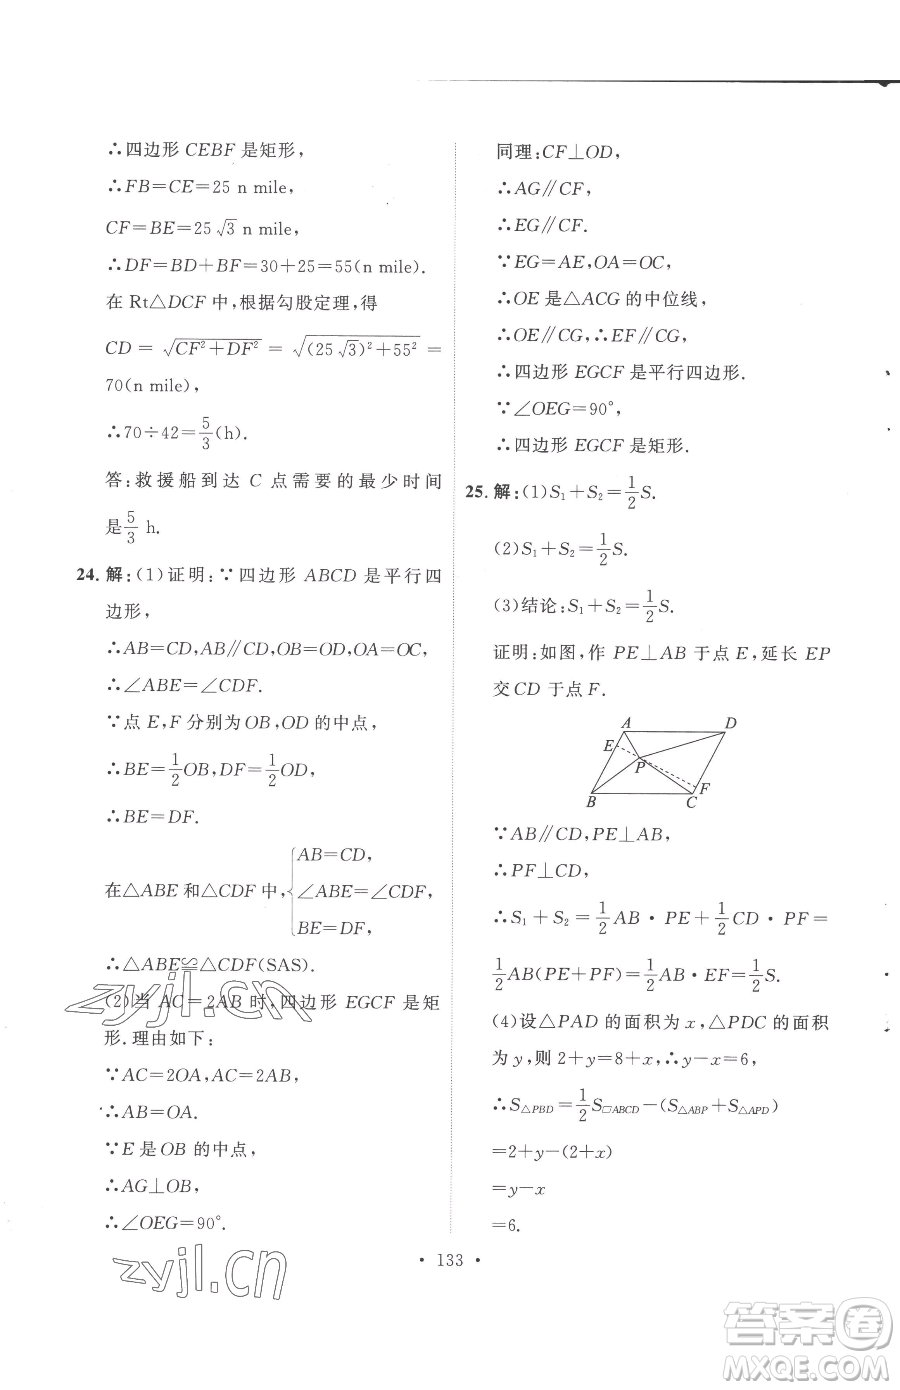 ∴四边形 CEBF 是矩形,
∴FB=CE=25 n mile,
CF=BE=25√3 n mile,
∴DF=BD+BF=30+25=55(n mile).
在 Rt△DCF 中,根据勾股定理,得
CD = √(CF²+DF²) = √((25√3)²+55²) =
70(n mile),
∴70÷42=5/3(h).
答:救援船到达 C 点需要的最少时间
是5/3 h.
24. 解:(1)证明:∵四边形 ABCD 是平行四
边形,
∴AB=CD,AB∥CD,OB=OD,OA=OC,
∴∠ABE=∠CDF.
∵点 E,F 分别为 OB,OD 的中点,
∴BE=1/2OB,DF=1/2OD,
∴BE=DF.
在△ABE 和△CDF 中,
AB=CD,
∠ABE=∠CDF,
BE=DF,
∴△ABE≌△CDF(SAS).
(2)当 AC=2AB 时,四边形 EGCF 是矩
形.理由如下:
∵AC=2OA,AC=2AB,
∴AB=OA.
∵E 是 OB 的中点,
∴AG⊥OB,
∴∠OEG=90°.
同理:CF⊥OD,
∴AG∥CF,
∴EG∥CF.
∵EG=AE,OA=OC,
∴OE 是△ACG 的中位线,
∴OE∥CG,∴EF∥CG,
∴四边形 EGCF 是平行四边形.
∵∠OEG=90°,
∴四边形 EGCF 是矩形.
25. 解:(1)S₁+S₂=1/2S.
(2)S₁+S₂=1/2S.
(3)结论:S₁+S₂=1/2S.
证明:如图,作 PE⊥AB 于点 E,延长 EP
交 CD 于点 F.
A D
E
P
F
B C
∵AB∥CD,PE⊥AB,
∴PF⊥CD,
∴S₁+S₂=1/2AB·PE+1/2CD·PF=
1/2AB(PE+PF)=1/2AB·EF=1/2S.
(4)设△PAD 的面积为 x,△PDC 的面积
为 y,则 2+y=8+x,∴y-x=6,
∴S△PBD=1/2S▱ABCD-(S△ABP+S△APD)
=2+y-(2+x)
=y-x
=6.
• 133 •
zyjl.cn
zyjl.cn
答案圈
MXQE.COM